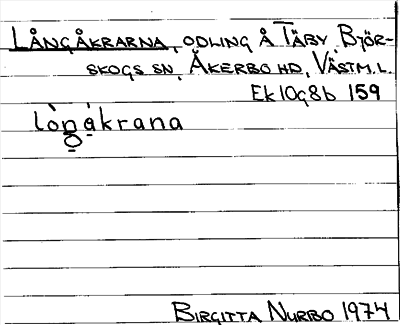 LÅNGÅKRARNA, ODLING Å TÄBY, BJÖR-
SKOGS SN, ÅKERBO HD, VÄSTM.L.
Ek10g8b 159
lo̱ŋåkrana
BIRGITTA NURBO 1974